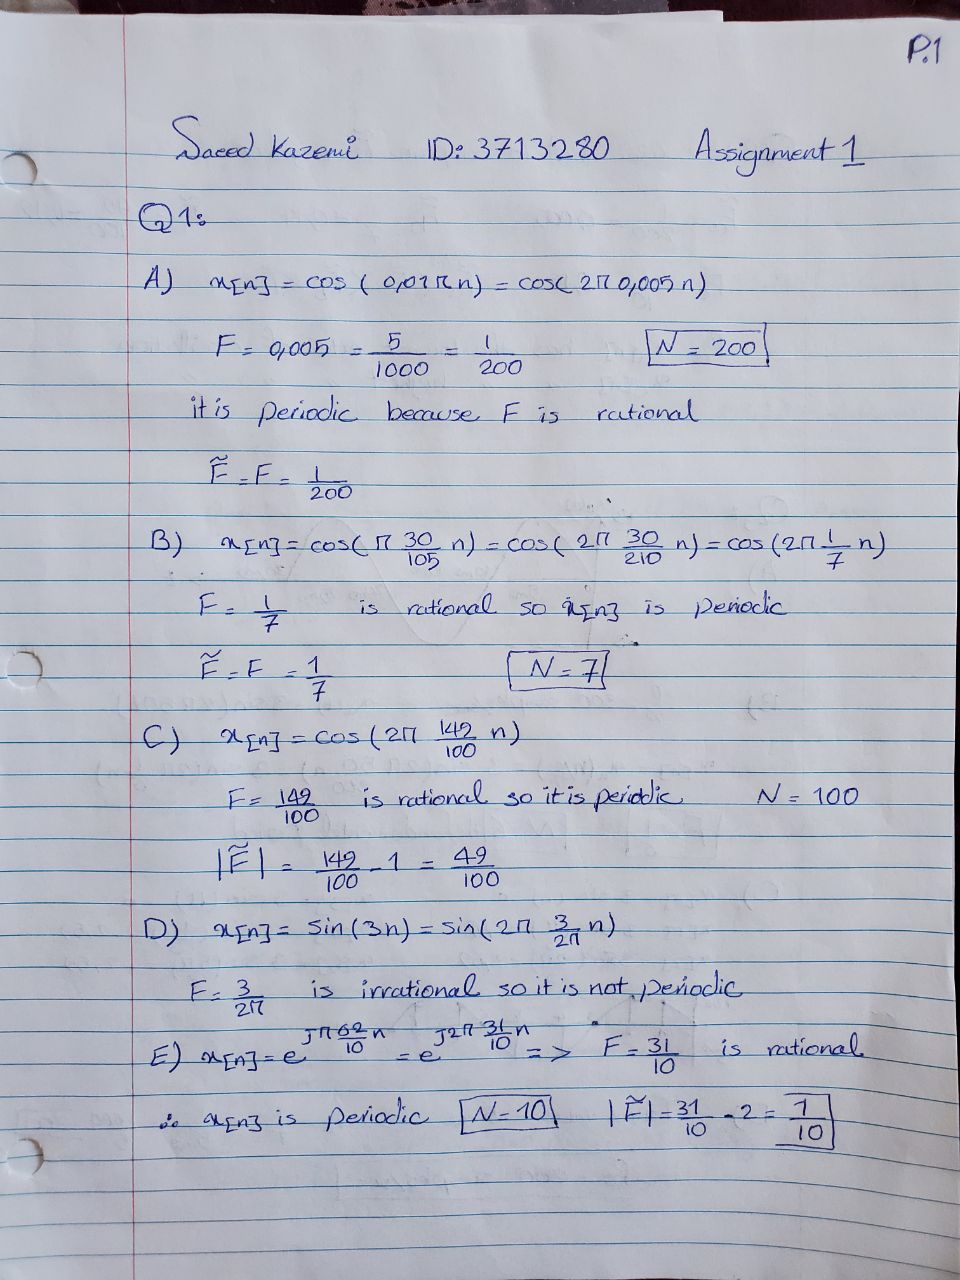 P.1
Saeed Kazemi ID: 3713280 Assignment 1
Q1:
A) x[n] = cos ( 0,01π n) = cos( 2π 0,005 n)
F = 0,005 = 5/1000 = 1/200 N = 200
it is periodic because F is rational
F̃ = F = 1/200
B) x[n] = cos( π 30/105 n) = cos( 2π 30/210 n) = cos (2π 1/7 n)
F = 1/7 is rational so x[n] is periodic
F̃ = F = 1/7 N = 7
C) x[n] = cos (2π 149/100 n)
F = 149/100 is rational so it is periodic N = 100
|F̃| = 149/100 - 1 = 49/100
D) x[n] = sin (3n) = sin( 2π 3/2π n)
F = 3/2π is irrational so it is not periodic
E) x[n] = e^jπ 62/10 n = e^j2π 31/10 n => F = 31/10 is rational
∴ x[n] is periodic N = 10 |F̃| = 31/10 - 2 = 1/10